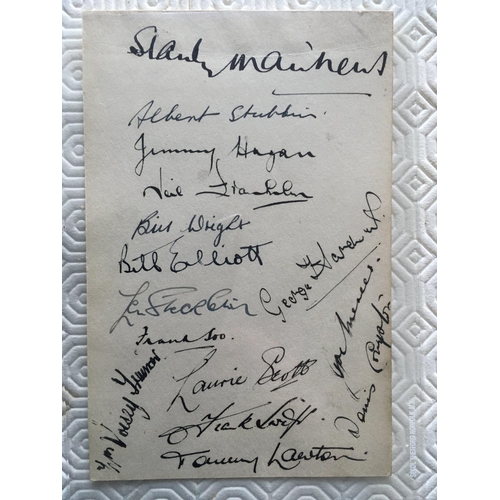 Stanley Matthews
Albert Stubbins.
Jimmy Hagan
Neil Franklin
Bill Wright
Bill Elliott
George Hardwick.
Len Shackleton
Frank Soo.
Joe Mercer.
Denis Compton
Laurie Scott
Frank Swift.
Tommy Lawton.